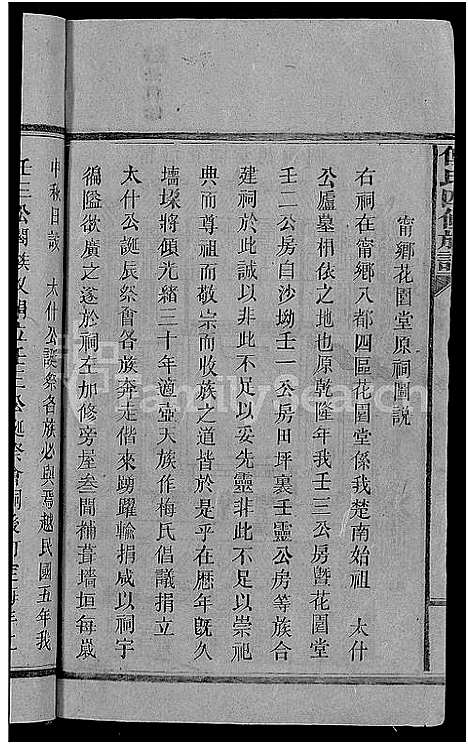 甯鄉花園堂原祠圖說
右祠在甯鄉八都四區花園堂係我楚南始祖 太什
公廬墓相依之地也原乾隆年我壬三公房暨花園堂
壬二公房白沙坳壬一公房田坪裏壬靈公房等族合
建祠於此誠以非此不足以妥先靈非此不足以崇祀
典而尊祖而敬宗而收族之道皆於是乎在厯年旣久
墻垛將傾光緒三十年適壼天族作梅氏倡議捐立
太什公誕辰祭會各族奔走偕來踴躍輸捐咸以祠宇
褊隘欲廣之遂於祠左加修旁屋叁間補葺墻垣每嵗
中秋日設 太什公誕祭各族必與焉越民國五年我
壬三公闔族又
氏四修族譜
FamilySearch